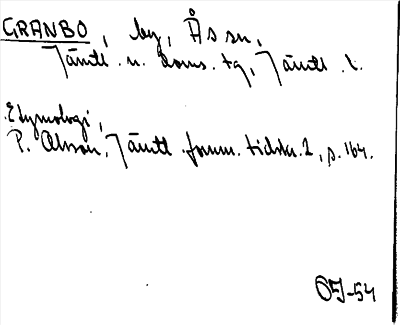 GRANBO, by, Ås sn,
Jämtl. n. doms. tg, Jämtl. l.
Etymologi,
P. Olsson, Jämtl. fornm. tidskr. 2, s. 164.
OJ-54